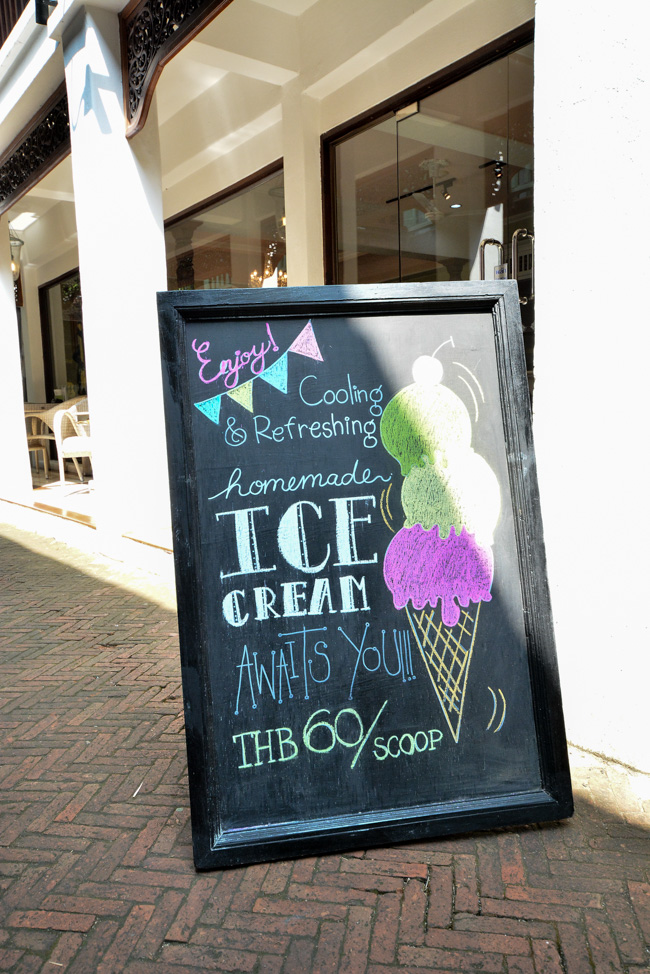 Enjoy!
Cooling
& Refreshing
homemade
ICE
CREAM
AWAITS YOU!!!
THB 60/SCOOP